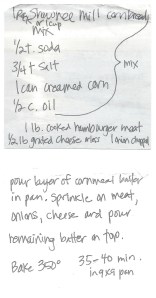 1 pkg Shawnee Mill cornbready
or 1 cup mix
1/2 t. soda
3/4 t salt
1 can creamed corn
1/2 c. oil
mix
1 lb. cooked hamburger meat
1/2 lb grated cheese 1 onion chopped
pour layer of cornmeal batter
in pan. sprinkle on meat,
onions, cheese and pour
remaining batter on top.
Bake 350° 35-40 min.
in 9x9 pan